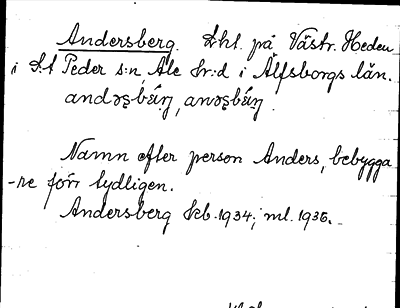 Andersberg. Lht. på Västr. Heden
i S:t Peder s:n, Ale hr:d i Älfsborgs län.
andəʂbá́rj, anəʂbá́rj.
Namn efter person Anders, bebygga
-re förr tydligen.
Andersberg Kb. 1934; ml. 1936.